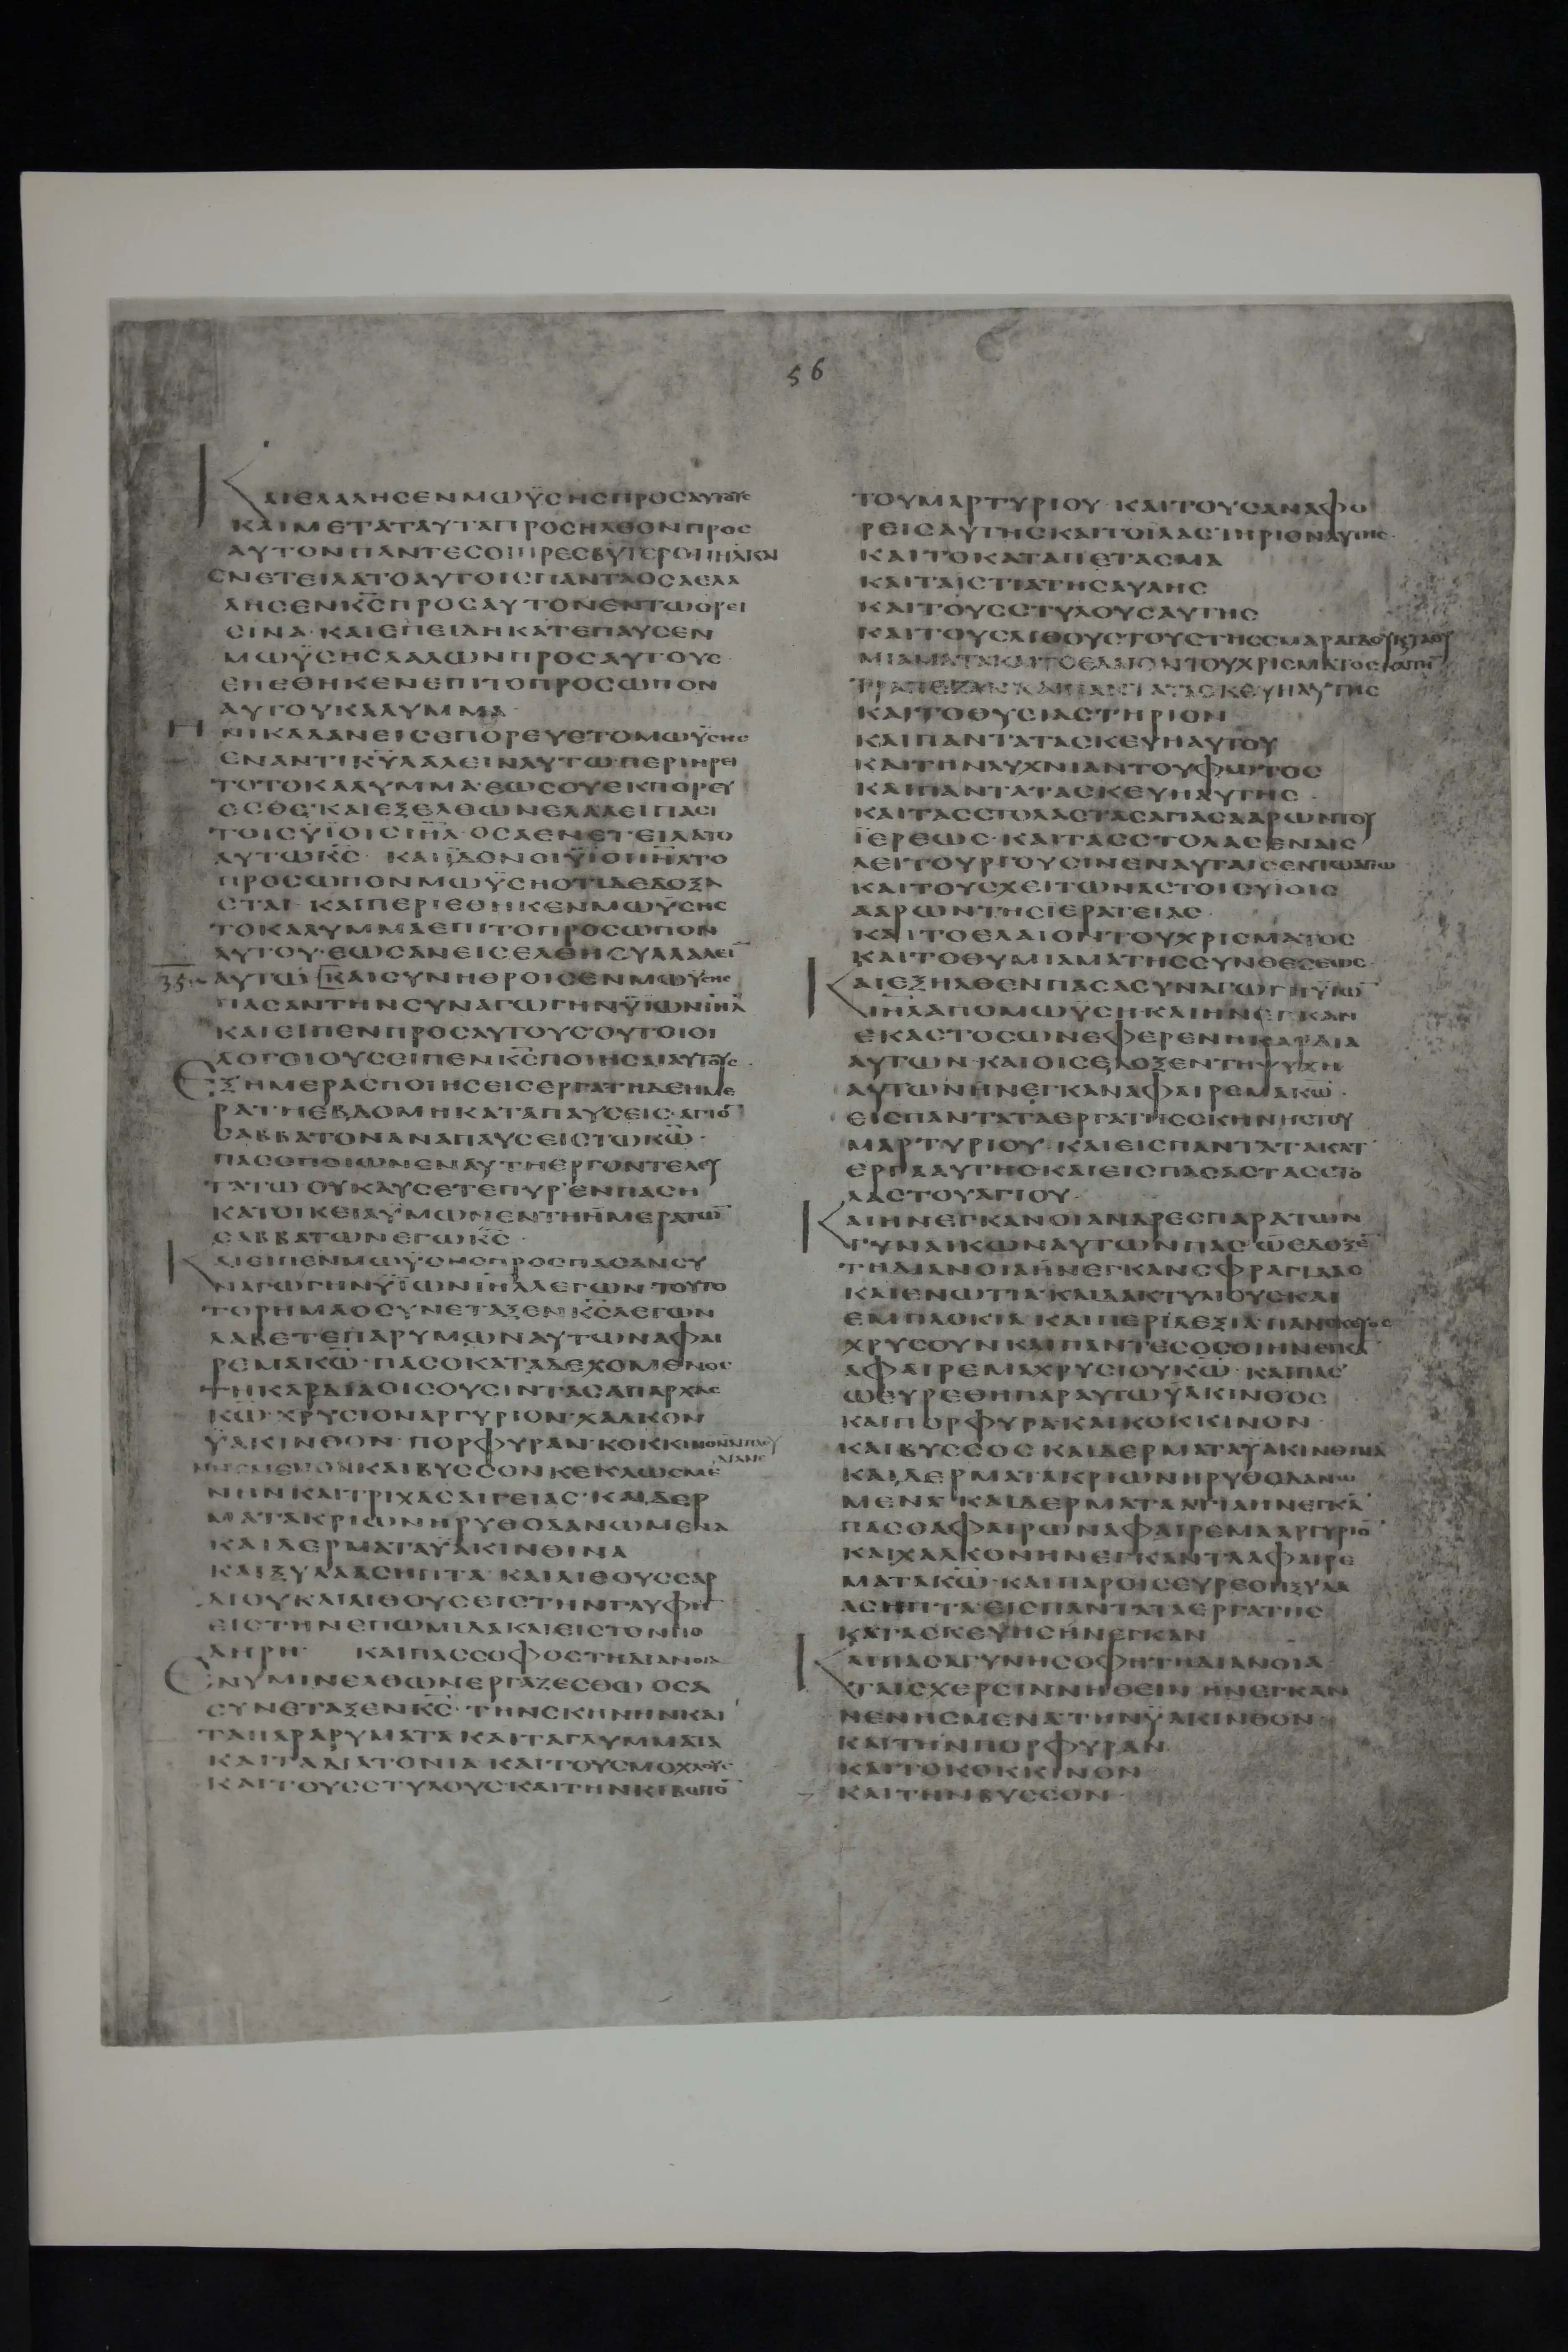 56
ΚΑΙΕΛΑΛΗΣΕΝΜΩΫΣΗΣΠΡΟΣΑΥΤΟΥΣ
ΚΑΙΜΕΤΑΤΑΥΤΑΠΡΟΣΗΛΘΟΝΠΡΟΣ
ΑΥΤΟΝΠΑΝΤΕΣΟΙΠΡΕΣΒΥΤΕΡΟΙΙΗΛΚΑΙ
ΕΝΕΤΕΙΛΑΤΟΑΥΤΟΙΣΠΑΝΤΑΟΣΑΕΛΑ
ΛΗΣΕΝΚΣΠΡΟΣΑΥΤΟΝΕΝΤΩΟΡΕΙ
ΣΙΝΑ·ΚΑΙΕΠΕΙΔΗΚΑΤΕΠΑΥΣΕΝ
ΜΩΫΣΗΣΛΑΛΩΝΠΡΟΣΑΥΤΟΥΣ
ΕΠΕΘΗΚΕΝΕΠΙΤΟΠΡΟΣΩΠΟΝ
ΑΥΤΟΥΚΑΛΥΜΜΑ·
ΗΝΙΚΑΔΑΝΕΙΣΕΠΟΡΕΥΕΤΟΜΩΫΣΗΣ
ΕΝΑΝΤΙΚΥΛΑΛΕΙΝΑΥΤΩΠΕΡΙΗΡΕΙ
ΤΟΤΟΚΑΛΥΜΜΑ·ΕΩΣΟΥΕΚΠΟΡΕΥ
ΕΣΘΕ·ΚΑΙΕΞΕΛΘΩΝΕΛΑΛΕΙΠΑΣΙ
ΤΟΙΣΫΙΟΙΣΙΗΛ·ΟΣΑΕΝΕΤΕΙΛΑΤΟ
ΑΥΤΩΚΣ· ΚΑΙΪΔΟΝΟΙΫΙΟΙΙΗΛΤΟ
ΠΡΟΣΩΠΟΝΜΩΫΣΗΟΤΙΔΕΔΟΞΑ
ΣΤΑΙ·ΚΑΙΠΕΡΙΕΘΗΚΕΝΜΩΫΣΗΣ
ΤΟΚΑΛΥΜΜΑΕΠΙΤΟΠΡΟΣΩΠΟΝ
ΑΥΤΟΥ·ΕΩΣΑΝΕΙΣΕΛΘΗΣΥΛΛΑΛΕΙ
35 ΑΥΤΩ ΚΑΙΣΥΝΗΘΡΟΙΣΕΝΜΩΫΣΗΣ
ΠΑΣΑΝΤΗΝΣΥΝΑΓΩΓΗΝΫΙΩΝΙΗΛ
ΚΑΙΕΙΠΕΝΠΡΟΣΑΥΤΟΥΣΟΥΤΟΙΟΙ
ΛΟΓΟΙΟΥΣΕΙΠΕΝΚΣΠΟΙΗΣΑΙΑΥΤΟΥΣ
ΕΞΗΜΕΡΑΣΠΟΙΗΣΕΙΣΕΡΓΑΤΗΔΕΗΜΕ
ΡΑΤΗΕΒΔΟΜΗΚΑΤΑΠΑΥΣΕΙΣ·ΑΓΙΟ
ΣΑΒΒΑΤΟΝΑΝΑΠΑΥΣΕΙΣΤΩΚΩ·
ΠΑΣΟΠΟΙΩΝΕΝΑΥΤΗΕΡΓΟΝΤΕΛΕΥ
ΤΑΤΩ ΟΥΚΑΥΣΕΤΕΠΥΡΕΝΠΑΣΗ
ΚΑΤΟΙΚΕΙΑΫΜΩΝΕΝΤΗΗΜΕΡΑΤΩ
ΣΑΒΒΑΤΩΝΕΓΩΚΣ·
ΚΑΙΕΙΠΕΝΜΩΫΣΗΣΠΡΟΣΠΑΣΑΝΣΥ
ΝΑΓΩΓΗΝΫΙΩΝΙΗΛΛΕΓΩΝ·ΤΟΥΤΟ
ΤΟΡΗΜΑΟΣΥΝΕΤΑΞΕΝΚΣΛΕΓΩΝ
ΛΑΒΕΤΕΠΑΡΥΜΩΝΑΥΤΩΝΑΦΑΙ
ΡΕΜΑΚΩ·ΠΑΣΟΚΑΤΑΔΕΧΟΜΕΝΟΣ
ΤΗΚΑΡΔΙΑΟΙΣΟΥΣΙΝΤΑΣΑΠΑΡΧΑΣ
ΚΩ·ΧΡΥΣΙΟΝΑΡΓΥΡΙΟΝ·ΧΑΛΚΟΝ
ΫΑΚΙΝΘΟΝ·ΠΟΡΦΥΡΑΝ·ΚΟΚΚΙΝΟΝΔΙΠΛΟΥ
ΔΙΑΝΕ
ΝΗΣΜΕΝΟΝΚΑΙΒΥΣΣΟΝΚΕΚΛΩΣΜΕ
ΝΗΝΚΑΙΤΡΙΧΑΣΑΙΓΕΙΑΣ·ΚΑΙΔΕΡ
ΜΑΤΑΚΡΙΩΝΗΡΥΘΟΔΑΝΩΜΕΝΑ
ΚΑΙΔΕΡΜΑΤΑΫΑΚΙΝΘΙΝΑ
ΚΑΙΞΥΛΑΑΣΗΠΤΑ·ΚΑΙΛΙΘΟΥΣΣΑΡ
ΔΙΟΥΚΑΙΛΙΘΟΥΣΕΙΣΤΗΝΓΛΥΦΗ
ΕΙΣΤΗΝΕΠΩΜΙΔΑΚΑΙΕΙΣΤΟΝΠΟ
ΔΗΡΗ ΚΑΙΠΑΣΣΟΦΟΣΤΗΔΙΑΝΟΙΑ
ΕΝΥΜΙΝΕΛΘΩΝΕΡΓΑΖΕΣΘΩ ΟΣΑ
ΣΥΝΕΤΑΞΕΝΚΣ·ΤΗΝΣΚΗΝΗΝΚΑΙ
ΤΑΠΑΡΑΡΥΜΑΤΑΚΑΙΤΑΓΛΥΜΜΑΤΑ
ΚΑΙΤΑΔΙΑΤΟΝΙΑ·ΚΑΙΤΟΥΣΜΟΧΛΟΥΣ
ΚΑΙΤΟΥΣΣΤΥΛΟΥΣ·ΚΑΙΤΗΝΚΙΒΩΤΟ
ΤΟΥΜΑΡΤΥΡΙΟΥ·ΚΑΙΤΟΥΣΑΝΑΦΟ
ΡΕΙΣΑΥΤΗΣΚΑΙΤΟΙΛΑΣΤΗΡΙΟΝΑΥΤΗΣ
ΚΑΙΤΟΚΑΤΑΠΕΤΑΣΜΑ
ΚΑΙΤΑΙΣΤΙΑΤΗΣΑΥΛΗΣ
ΚΑΙΤΟΥΣΣΤΥΛΟΥΣΑΥΤΗΣ
ΚΑΙΤΟΥΣΛΙΘΟΥΣΤΟΥΣΤΗΣΣΜΑΡΑΓΔΟΥΚΤΟΘΥ
ΜΙΑΜΑΤΑΚΑΙΤΟΕΛΑΙΟΝΤΟΥΧΡΙΣΜΑΤΟΣΚΑΙΤΗ
ΤΡΑΠΕΖΑΝΚΑΙΠΑΝΤΑΤΑΣΚΕΥΗΑΥΤΗΣ
ΚΑΙΤΟΘΥΣΙΑΣΤΗΡΙΟΝ
ΚΑΙΠΑΝΤΑΤΑΣΚΕΥΗΑΥΤΟΥ
ΚΑΙΤΗΝΛΥΧΝΙΑΝΤΟΥΦΩΤΟΣ
ΚΑΙΠΑΝΤΑΤΑΣΚΕΥΗΑΥΤΗΣ·
ΚΑΙΤΑΣΣΤΟΛΑΣΤΑΣΑΓΙΑΣΑΑΡΩΝΤΟΥ
ΪΕΡΕΩΣ·ΚΑΙΤΑΣΣΤΟΛΑΣΕΝΑΙΣ
ΛΕΙΤΟΥΡΓΟΥΣΙΝΕΝΑΥΤΑΙΣΕΝΤΩΑΓΙΩ
ΚΑΙΤΟΥΣΧΕΙΤΩΝΑΣΤΟΙΣΥΙΟΙΣ
ΑΑΡΩΝΤΗΣΙΕΡΑΤΕΙΑΣ·
ΚΑΙΤΟΕΛΑΙΟΝΤΟΥΧΡΙΣΜΑΤΟΣ
ΚΑΙΤΟΘΥΜΙΑΜΑΤΗΣΣΥΝΘΕΣΕΩΣ·
ΚΑΙΕΞΗΛΘΕΝΠΑΣΑΣΥΝΑΓΩΓΗΥΙΩ
ΙΗΛΑΠΟΜΩΫΣΗΚΑΙΗΝΕΓΚΑΝ
ΕΚΑΣΤΟΣΩΝΕΦΕΡΕΝΗΚΑΡΔΙΑ
ΑΥΤΩΝ·ΚΑΙΟΙΣΕΔΟΞΕΝΤΗΨΥΧΗ
ΑΥΤΩΝΗΝΕΓΚΑΝΑΦΑΙΡΕΜΑΚΩ·
ΕΙΣΠΑΝΤΑΤΑΕΡΓΑΤΗΣΣΚΗΝΗΣΤΟΥ
ΜΑΡΤΥΡΙΟΥ·ΚΑΙΕΙΣΠΑΝΤΑΤΑΚΑΤ
ΕΡΓΑΑΥΤΗΣ·ΚΑΙΕΙΣΠΑΣΑΣΤΑΣΣΤΟ
ΛΑΣΤΟΥΑΓΙΟΥ
ΚΑΙΗΝΕΓΚΑΝΟΙΑΝΔΡΕΣΠΑΡΑΤΩΝ
ΓΥΝΑΙΚΩΝΑΥΤΩΝΠΑΣΩΕΔΟΞΕ
ΤΗΔΙΑΝΟΙΑΗΝΕΓΚΑΝΣΦΡΑΓΙΔΑΣ
ΚΑΙΕΝΩΤΙΑ·ΚΑΙΔΑΚΤΥΛΙΟΥΣΚΑΙ
ΕΜΠΛΟΚΙΑ·ΚΑΙΠΕΡΙΔΕΞΙΑ·ΠΑΝΣΚΕΥΟΣ
ΧΡΥΣΟΥΝΚΑΙΠΑΝΤΕΣΟΣΟΙΗΝΕΓΚΑ
ΑΦΑΙΡΕΜΑΧΡΥΣΙΟΥΚΩ·ΚΑΙΠΑΣ
ΩΕΥΡΕΘΗΠΑΡΑΥΤΩΫΑΚΙΝΘΟΣ
ΚΑΙΠΟΡΦΥΡΑ·ΚΑΙΚΟΚΚΙΝΟΝ
ΚΑΙΒΥΣΣΟΣ·ΚΑΙΔΕΡΜΑΤΑΫΑΚΙΝΘΙΝΑ
ΚΑΙΔΕΡΜΑΤΑΚΡΙΩΝΗΡΥΘΟΔΑΝΩ
ΜΕΝΑ·ΚΑΙΔΕΡΜΑΤΑΑΙΓΙΑΗΝΕΓΚΑ
ΠΑΣΟΑΦΑΙΡΩΝΑΦΑΙΡΕΜΑΑΡΓΥΡΙΟ
ΚΑΙΧΑΛΚΟΝΗΝΕΓΚΑΝΤΑΑΦΑΙΡΕ
ΜΑΤΑΚΩ·ΚΑΙΠΑΡΟΙΣΕΥΡΕΘΗΞΥΛΑ
ΑΣΗΠΤΑΕΙΣΠΑΝΤΑΤΑΕΡΓΑΤΗΣ
ΚΑΤΑΣΚΕΥΗΣΗΝΕΓΚΑΝ
ΚΑΙΠΑΣΑΓΥΝΗΣΟΦΗΤΗΔΙΑΝΟΙΑ
ΤΑΙΣΧΕΡΣΙΝΝΗΘΕΙΝ ΗΝΕΓΚΑΝ
ΝΕΝΗΣΜΕΝΑ·ΤΗΝΫΑΚΙΝΘΟΝ
ΚΑΙΤΗΝΠΟΡΦΥΡΑΝ
ΚΑΙΤΟΚΟΚΚΙΝΟΝ
ΚΑΙΤΗΝΒΥΣΣΟΝ·